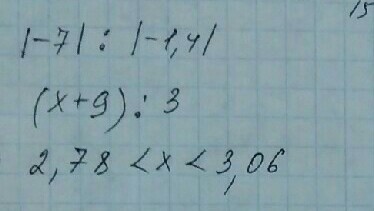 15
|-7| : |-1,4|
(x+9) : 3
2,78 < x < 3,06